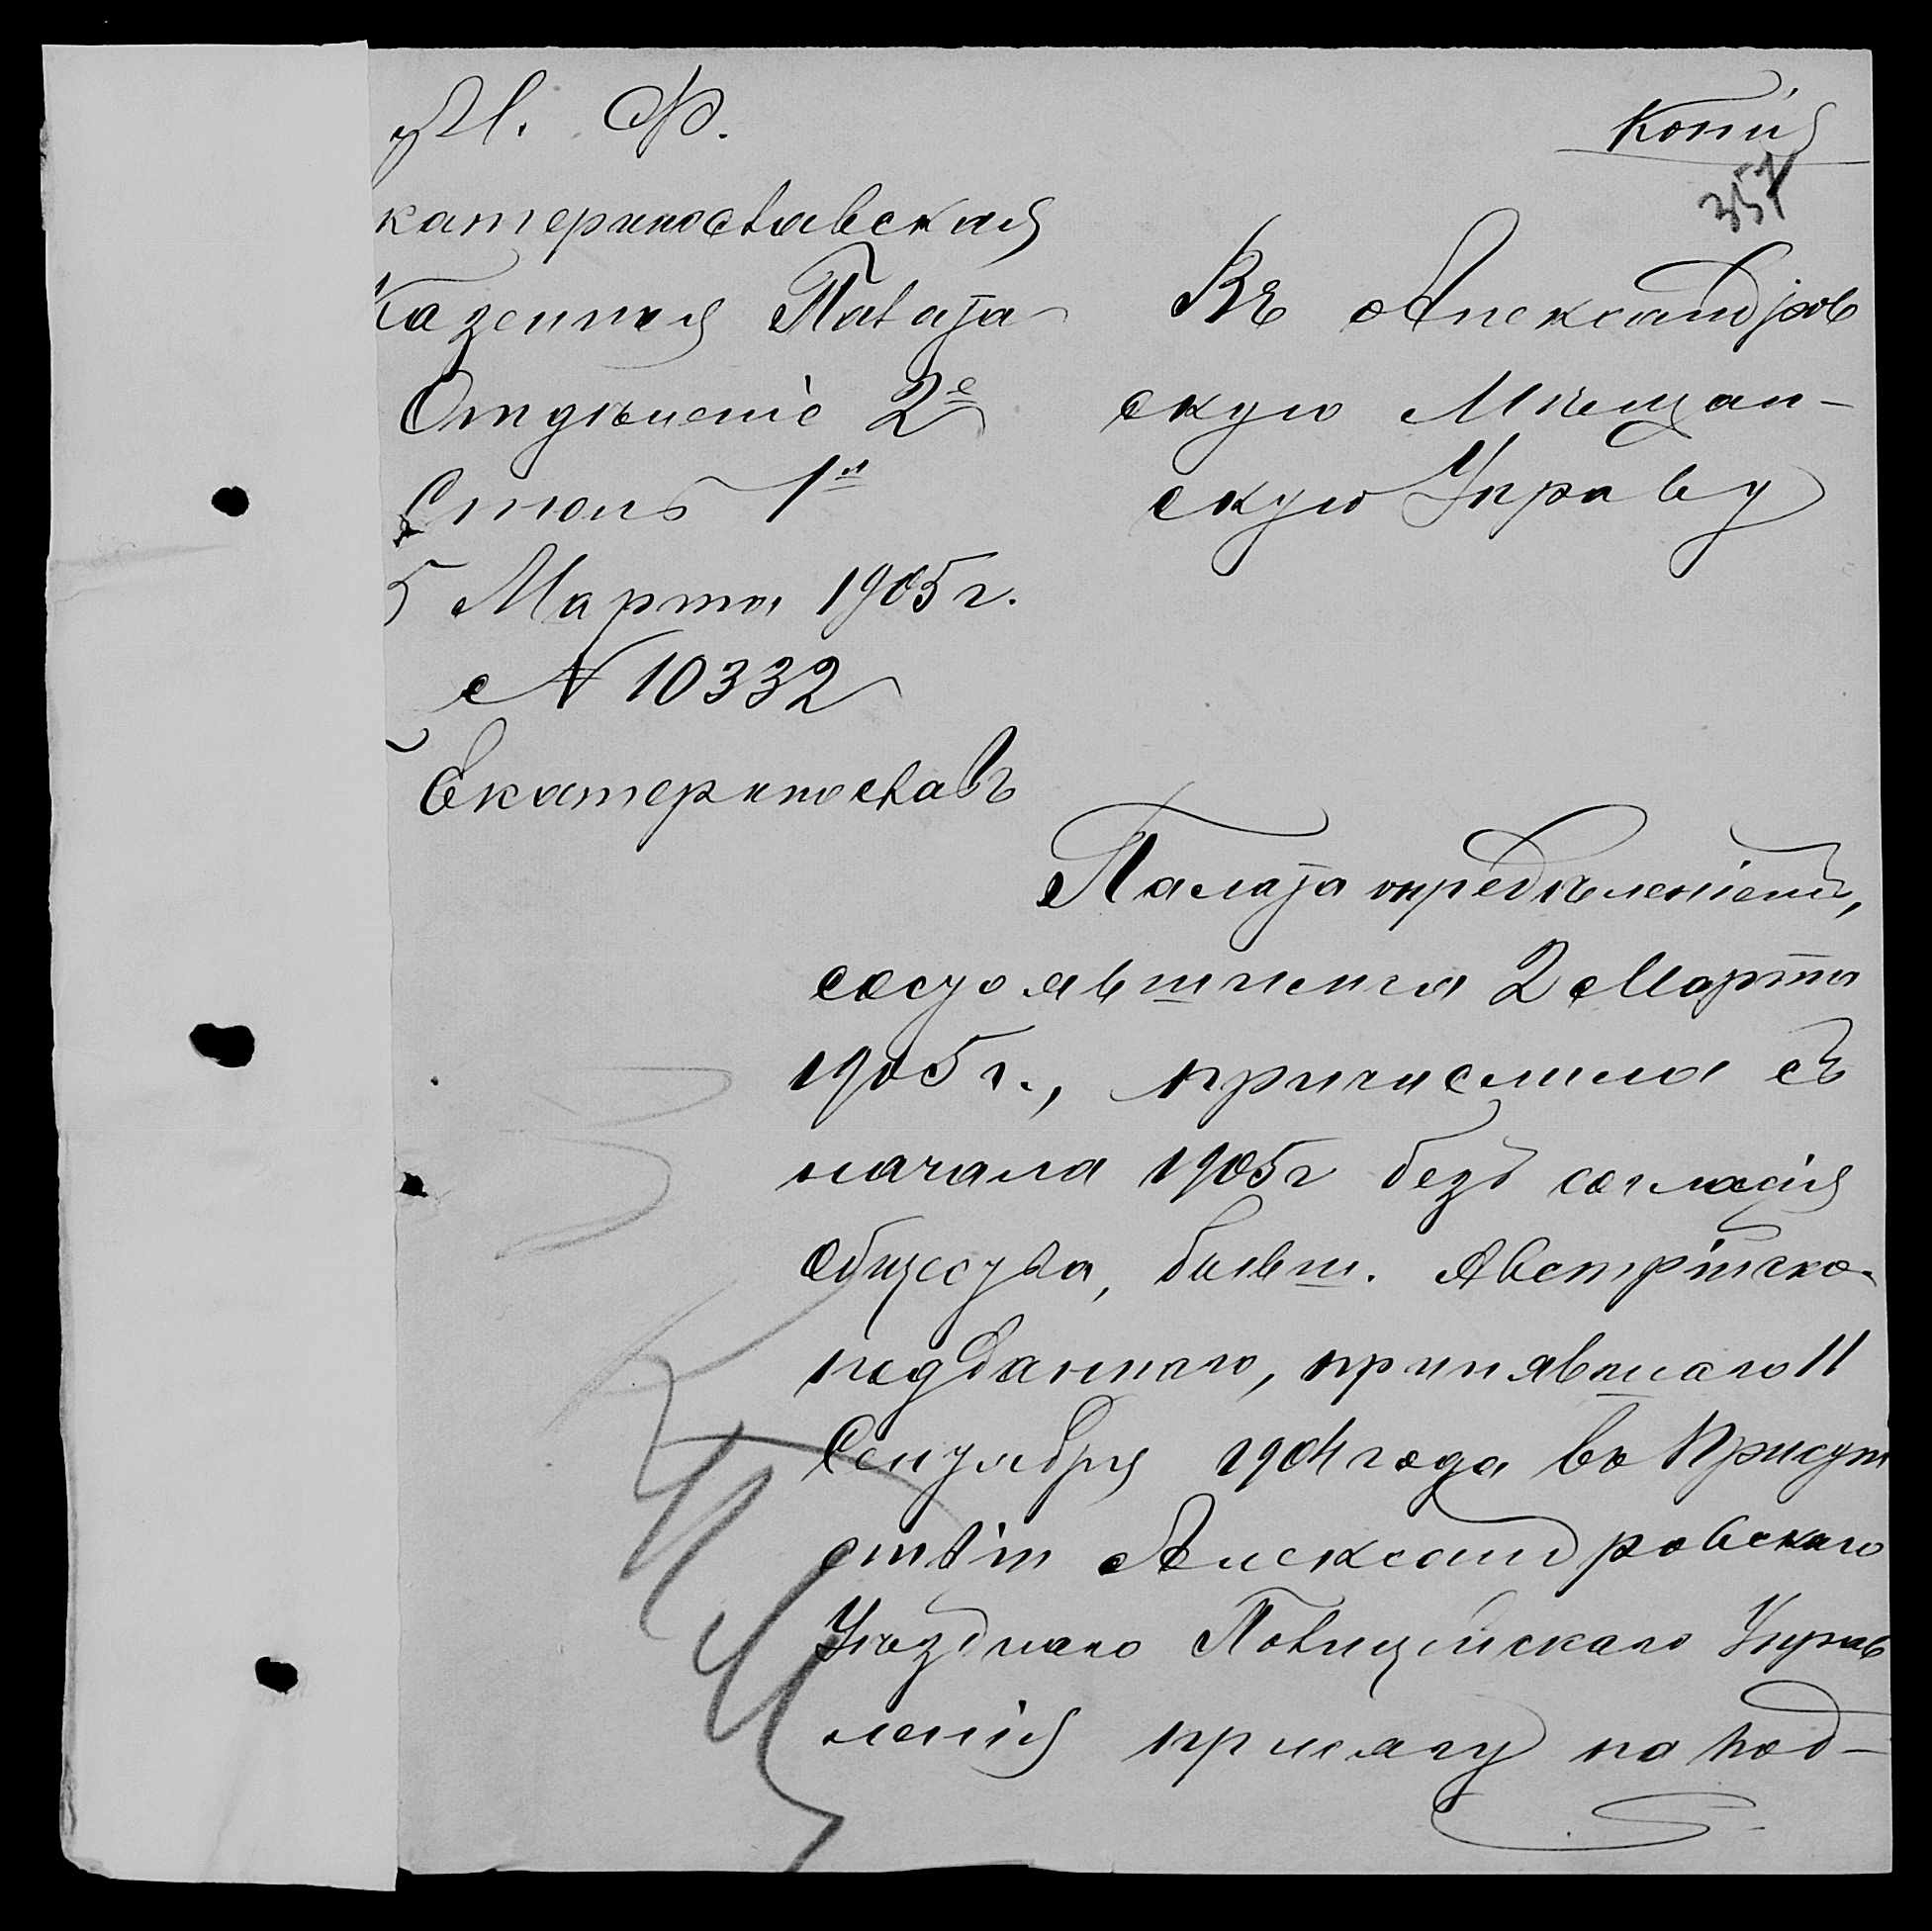 М. Ф.
катеринославская
Казенная Палата
Отдѣленіе 2е
Столъ 1й
5 Марта 1905 г.
№ 10332
Екатеринославъ
Копія
357
Въ Александров
скую Мѣщан-
скую Управу
Палата опредѣленіемъ,
состоявшимся 2 Марта
1905 г., причислила съ
начала 1905 г безъ согласія
общества, бывш. Австрійско-
подданнаго, принявшаго 11
Сентября 1904 года въ Присут
ствіи Александровскаго
Уѣзднаго Полицейскаго Управ
ленія присягу на под-